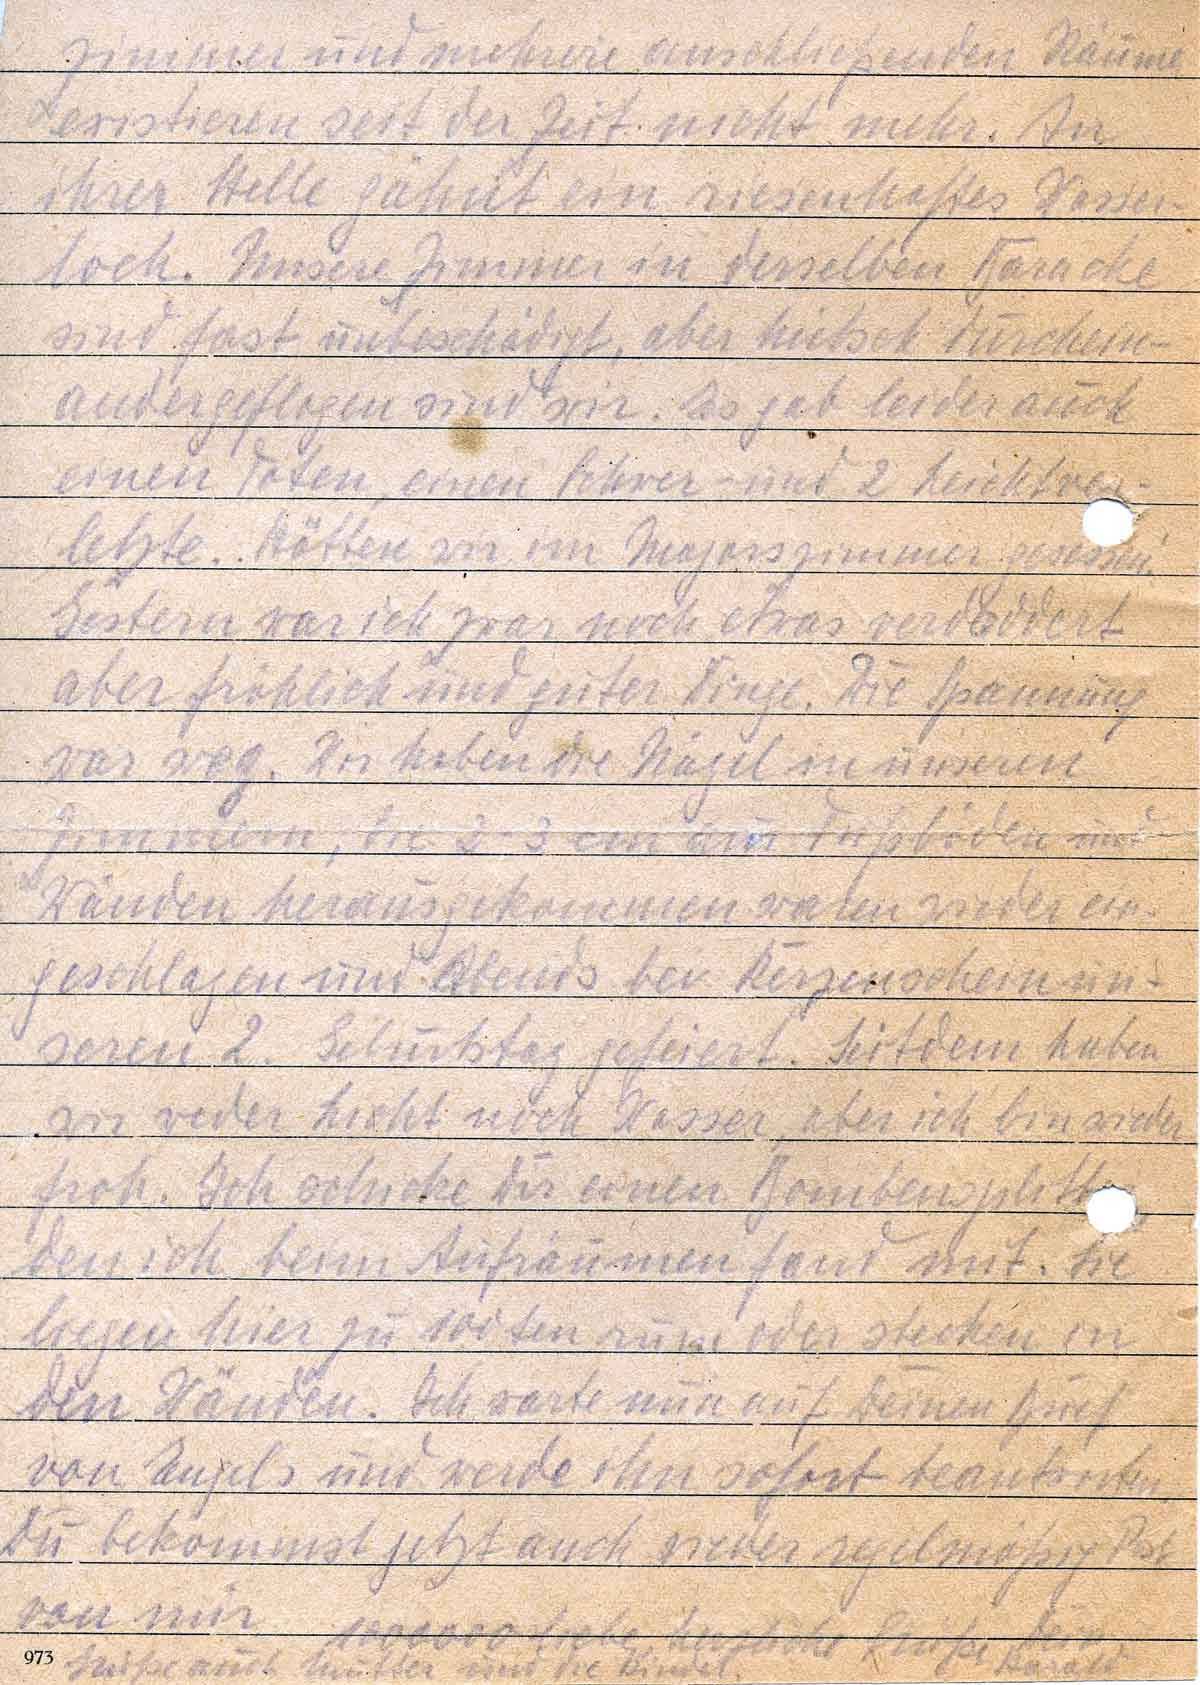 zimmer und mehrere anschließenden Räume
existieren seit der Zeit nicht mehr. An
ihrer Stelle gähnt ein riesenhaftes Wasser-
loch. Unsere Zimmer in derselben Baracke
sind fast unbeschädigt, aber durchein-
andergeflogen sind wir. Es gab leider auch
einen Toten, einen Schwer- und 2 Leichtver-
letzte. Hätten wir im Majorszimmer gesessen.
Gestern war ich zwar noch etwas verdaddert
aber fröhlich und guter Dinge. Die Spannung
war weg. Wir haben die Nägel in unseren
Zimmern, die 2-3 cm aus Fußböden und
Wänden herausgekommen waren wieder ein-
geschlagen und Abends bei Kerzenschein un-
seren 2. Geburtstag gefeiert. Seitdem haben
wir weder Licht noch Wasser, aber ich bin wieder
froh. Ich schicke Dir einen Bombensplitter
den ich beim Aufräumen fand mit. Sie
liegen hier zu rum oder stecken in
den Wänden. Ich warte nun auf Deinen Brief
von Engels und werde ihn sofort beantworten.
Du bekommst jetzt auch wieder regelmäßig Post
von mir
1000000 liebe, herzliche Grüße Dein
Harald
973 Grüße auch Mutter und die